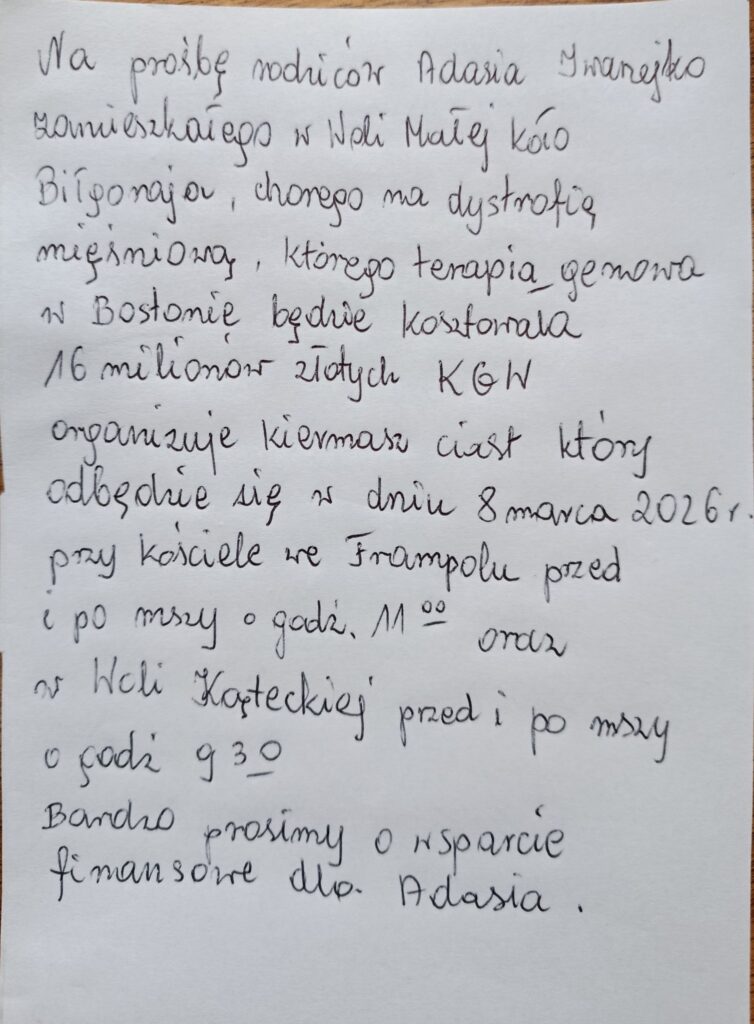 Na prośbę rodziców Adasia Iwanejko
zamieszkałego w Woli Małej koło
Biłgoraja, chorego na dystrofią
mięśniową, którego terapia genowa
w Bostonie będzie kosztowała
16 milionów złotych KGW
organizuje kiermasz ciast który
odbędzie się w dniu 8 marca 2026 r.
przy kościele we Frampolu przed
i po mszy o godź. 11 00 oraz
w Woli Kąteckiej przed i po mszy
o godź 9 30
Bardzo prosimy o wsparcie
finansowe dla Adasia.